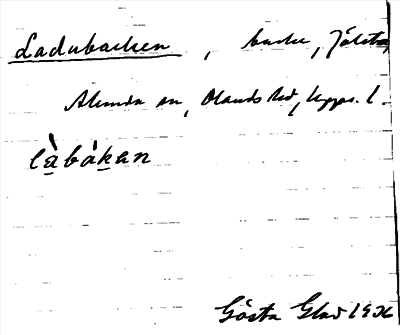 Ladubacken, backe, Jölsta,
Alunda sn, Olands hd, Upps. l.
làbàkan
Gösta Glad 1936